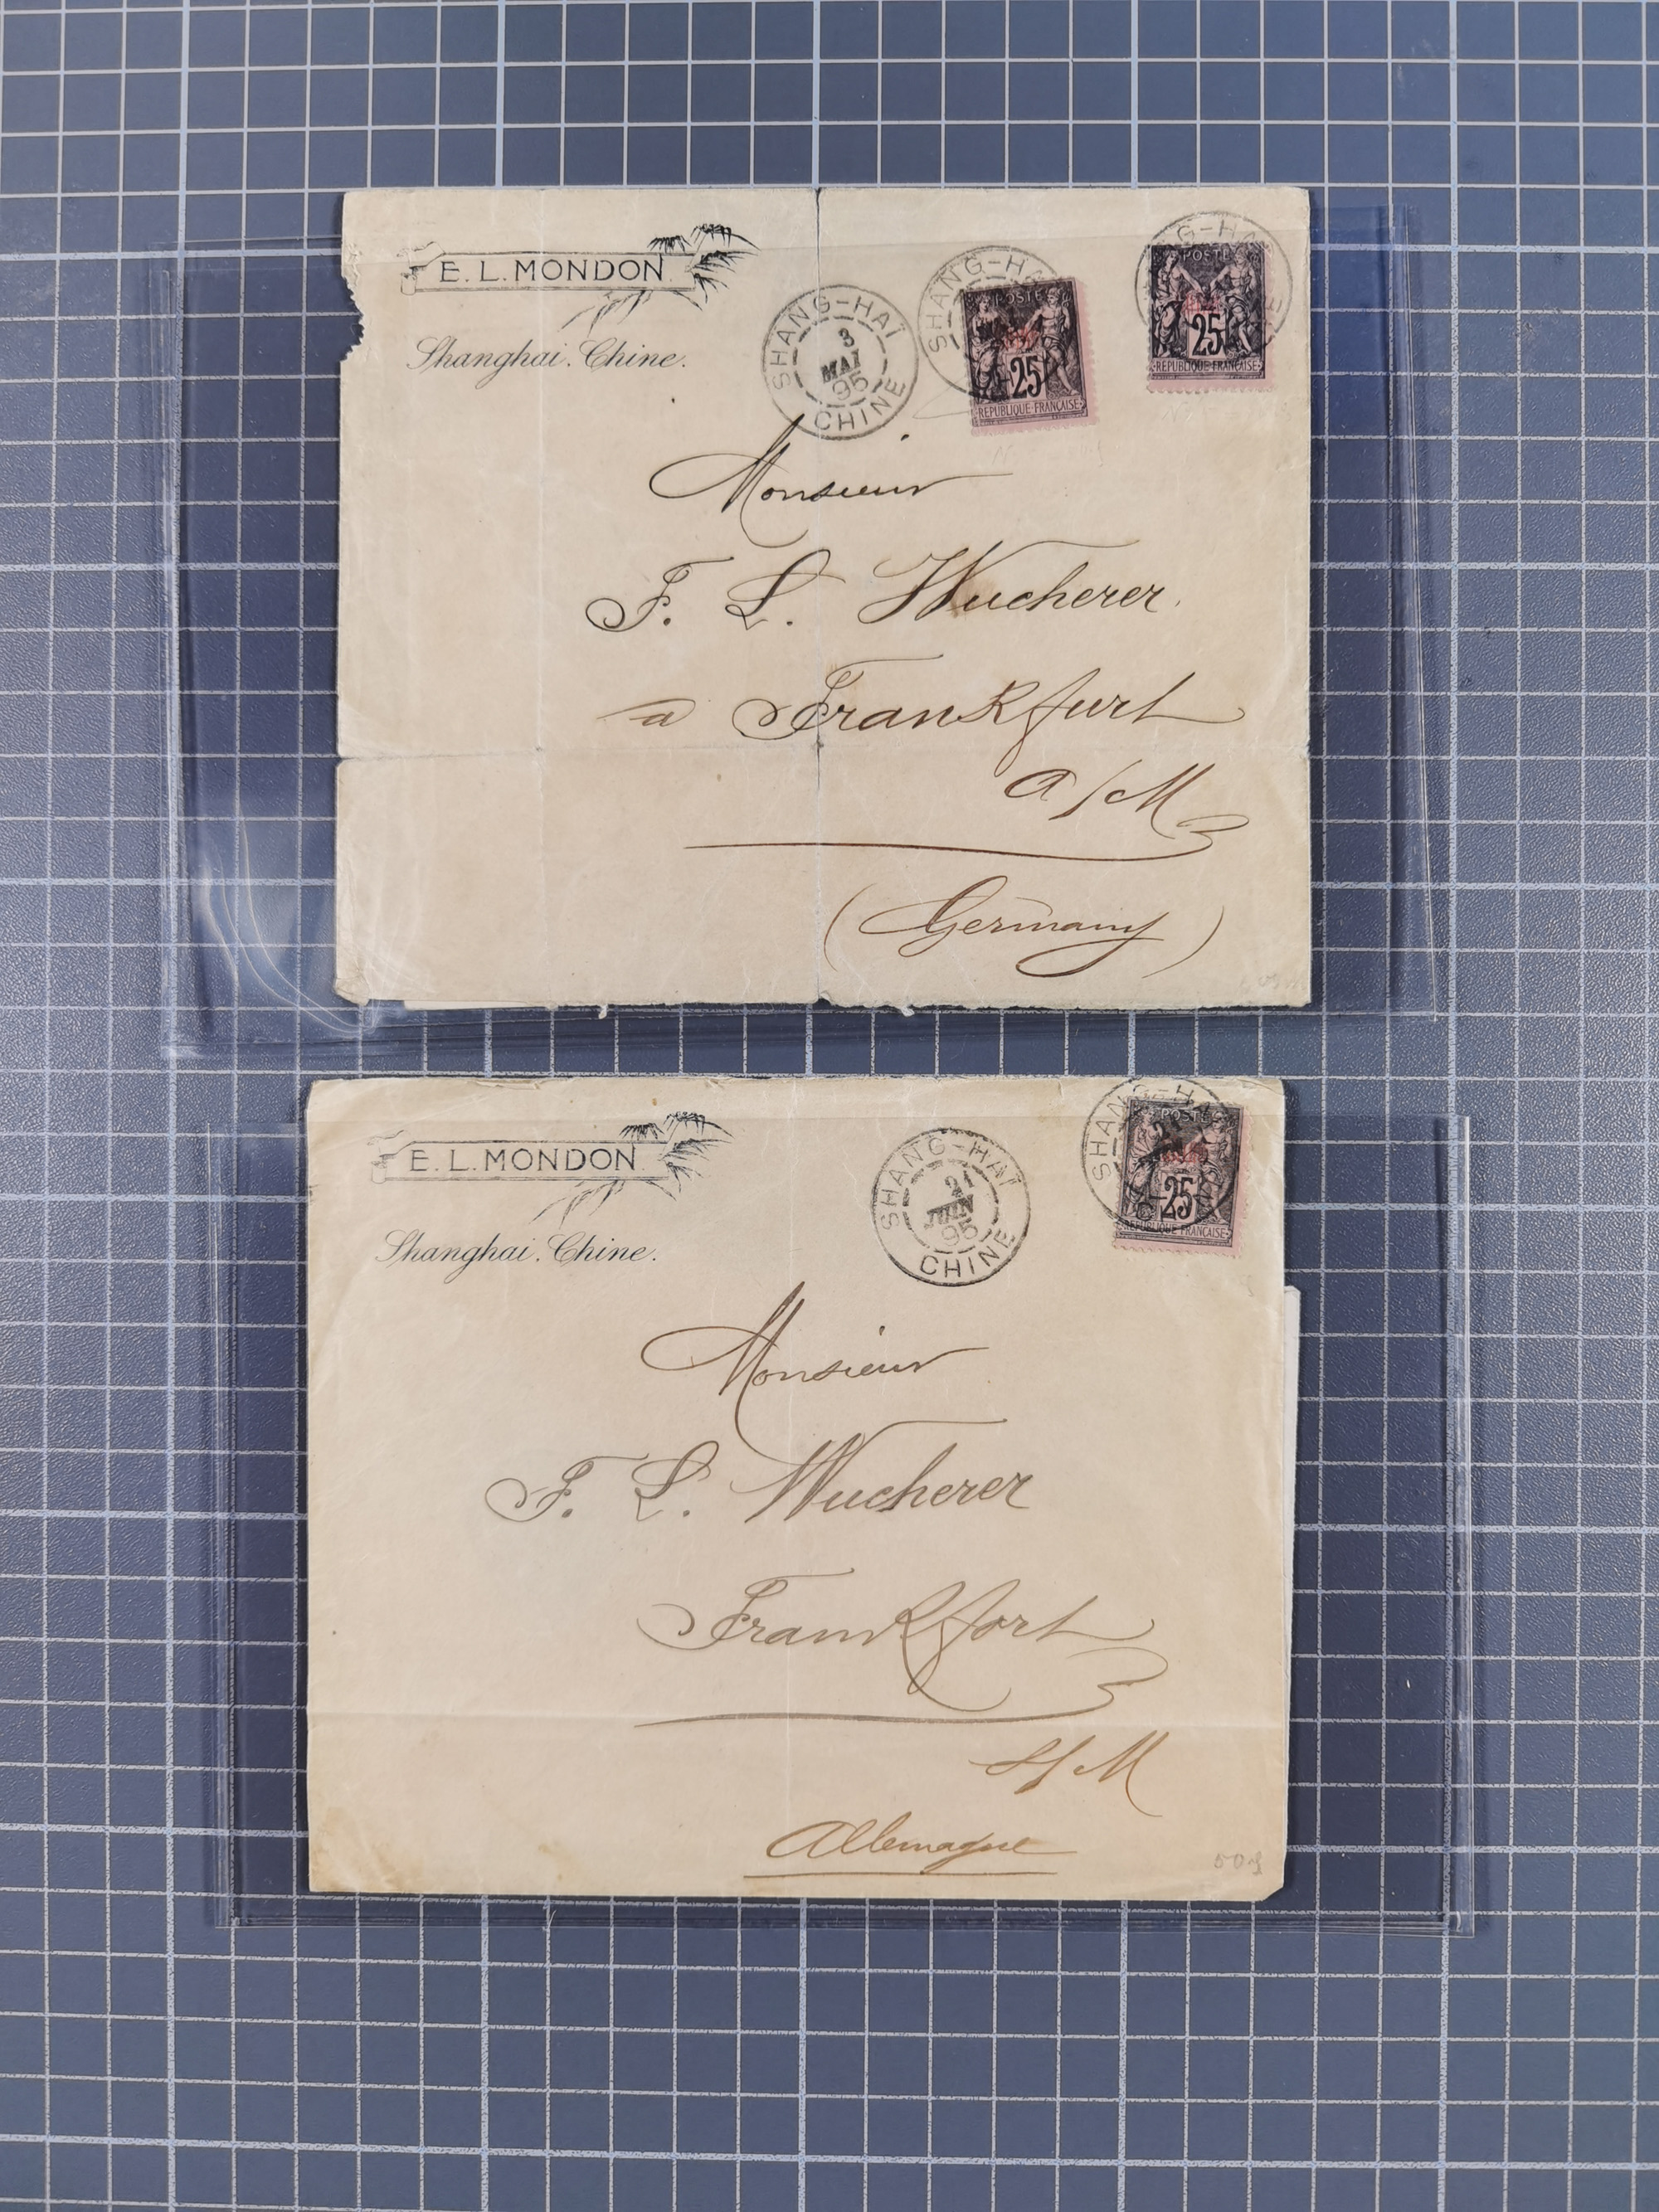 E. L. MONDON
Shanghai. Chine.
SHANG-HAÏ
3
MAI
95
CHINE
SHANG-HA
POSTE
25
REPUBLIQUE FRANÇAISE
G-HA
POSTE
25
REPUBLIQUE FRANÇAISE
Monsieur
F. L. Wucherer.
a Frankfurt
a/M
(Germany)
E. L. MONDON
Shanghai. Chine.
SHANG-HAÏ
JUIN
95
CHINE
SHANG-HA
POSTE
25
REPUBLIQUE FRANÇAISE
Monsieur
F. L. Wucherer
Frankfort
s/M
Allemagne